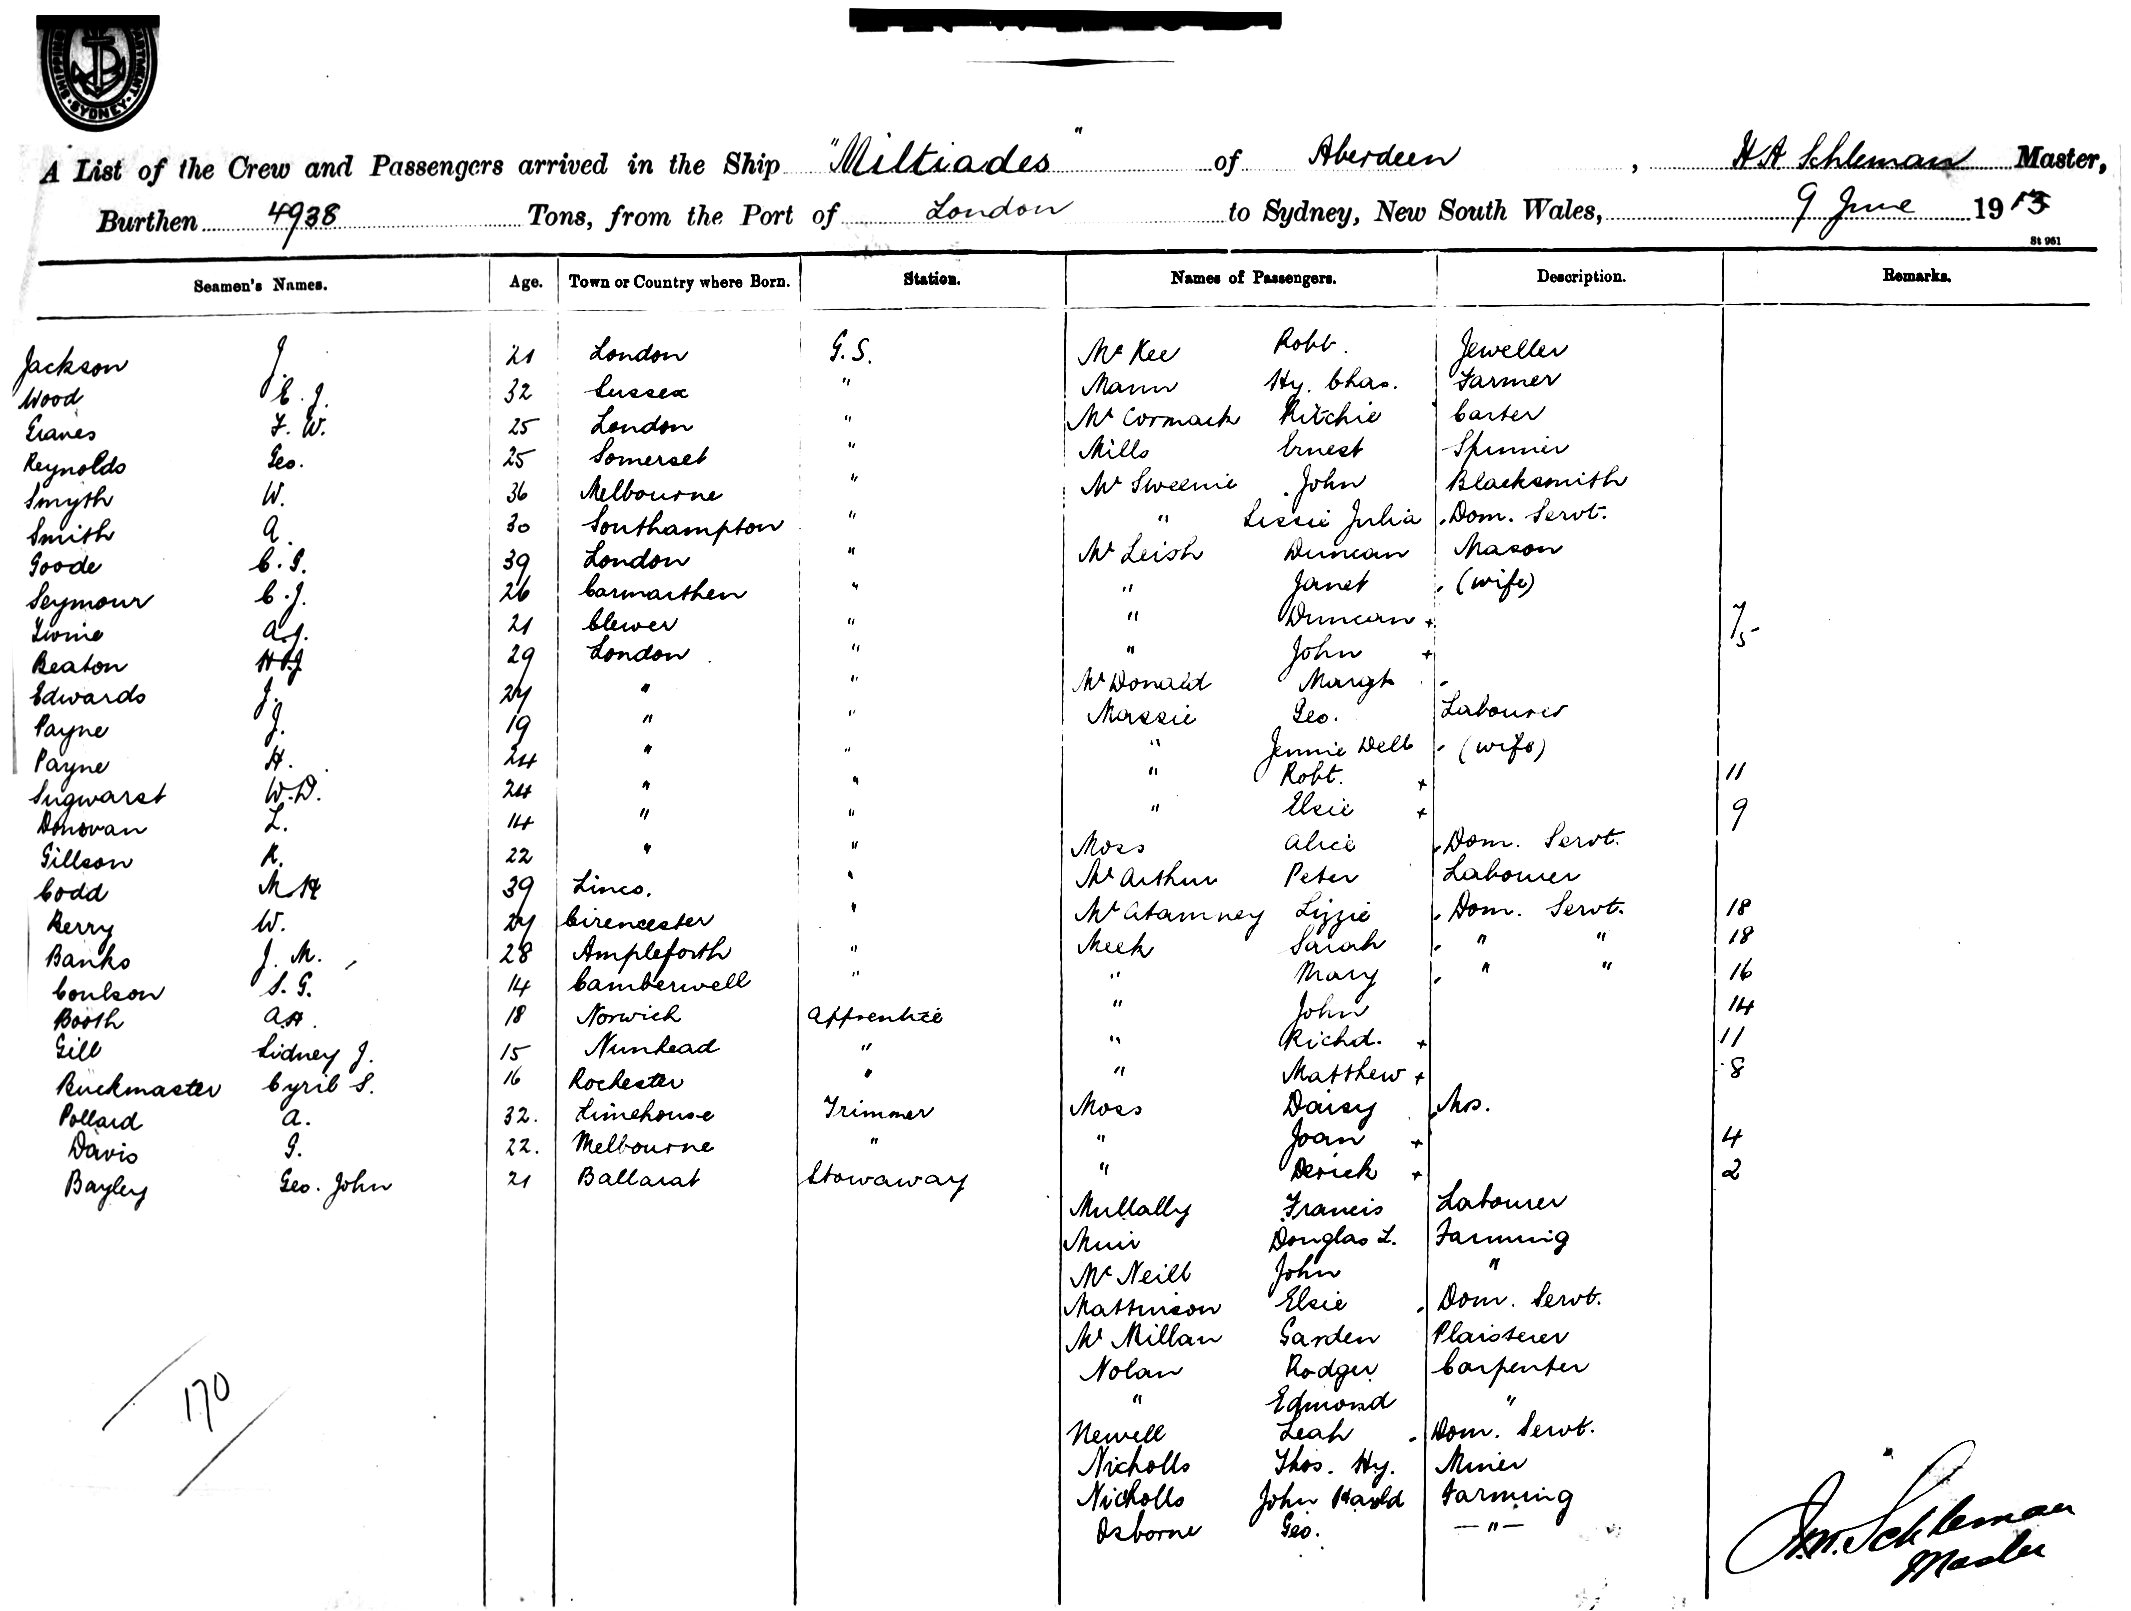 SHIPPING DEPARTMENT SYDNEY
A List of the Crew and Passengers arrived in the Ship "Miltiades" of Aberdeen, H A Schleman Master,
Burthen 4938 Tons, from the Port of London to Sydney, New South Wales, 9 June 1913
St 961
Seamen's Names. Age. Town or Country where Born. Station. Names of Passengers. Description. Remarks.
Jackson J. 21 London G.S. McKee Robt. Jeweller
Wood C. J. 32 Sussex " Mann Hy. Chas. Farmer
Graves F. W. 25 London " McCormack Ritchie Carter
Reynolds Geo. 25 Somerset " Mills Ernest Spinner
Smyth W. 36 Melbourne " McSweenie John Blacksmith
Smith A. 30 Southampton " " Lissie Julia Dom. Servt.
Goode C. G. 39 London " McLeish Duncan Mason
Seymour C. J. 26 Carmarthen " " Janet (wife)
Irvine A. J. 21 Clewer " " Duncan + 7
Beaton 29 London " " John + 5
Edwards J. 27 " " McDonald Margt.
Payne J. 19 " " Massie Geo. Labourer
Payne H. 24 " " " Jennie Dell (wife)
W. D. 24 " " " Robt. + 11
Donovan L. 14 " " " Elsie + 9
Gillson R. 22 " " Moss Alice Dom. Servt.
Codd M H 39 Lincs. " McArthur Peter Labourer
Berry W. 27 Cirencester " McAtamney Lizzie Dom. Servt. 18
Banks J. M. 28 Ampleforth " Meek Sarah " " 18
Coulson S. G. 14 Camberwell " " Mary " " 16
Booth A. H. 18 Norwich Apprentice " John 14
Gill Sidney J. 15 Nunhead " " Richd. + 11
Buckmaster Cyril S. 16 Rochester " " Matthew + 8
Pollard A. 32. Limehouse Trimmer Moss Daisy Mrs.
Davis G. 22. Melbourne " " Joan + 4
Bayley Geo. John 21 Ballarat Stowaway " Derick + 2
Mullally Francis Labourer
Muir Douglas L. Farming
McNeill John "
Mattinson Elsie Dom. Servt.
McMillan Garden Plaisterer
Nolan Rodger Carpenter
" Edmond "
Newell Leah Dom. Servt.
Nicholls Thos. Hy. Miner
Nicholls John Harold Farming
Osborne Geo. — " —
170
Schleman
Master